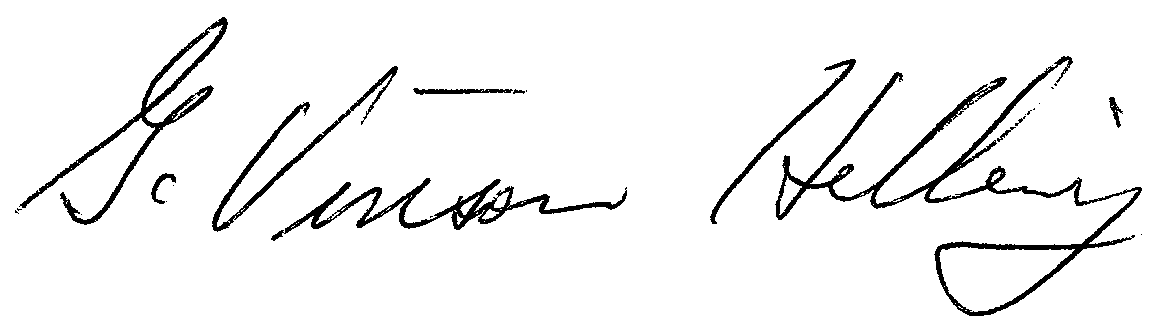 G. Vinson Hellwig